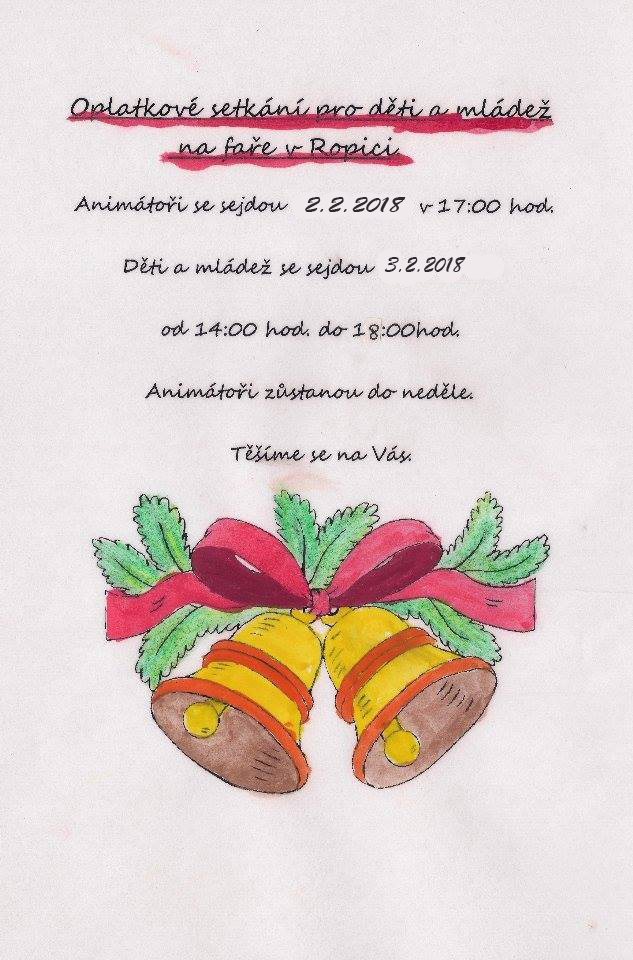 Oplatkové setkání pro děti a mládež
na faře v Ropici
Animátoři se sejdou 2.2.2018 v 17:00 hod.
Děti a mládež se sejdou 3.2.2018
od 14:00 hod. do 18:00hod.
Animátoři zůstanou do neděle.
Těšíme se na Vás.